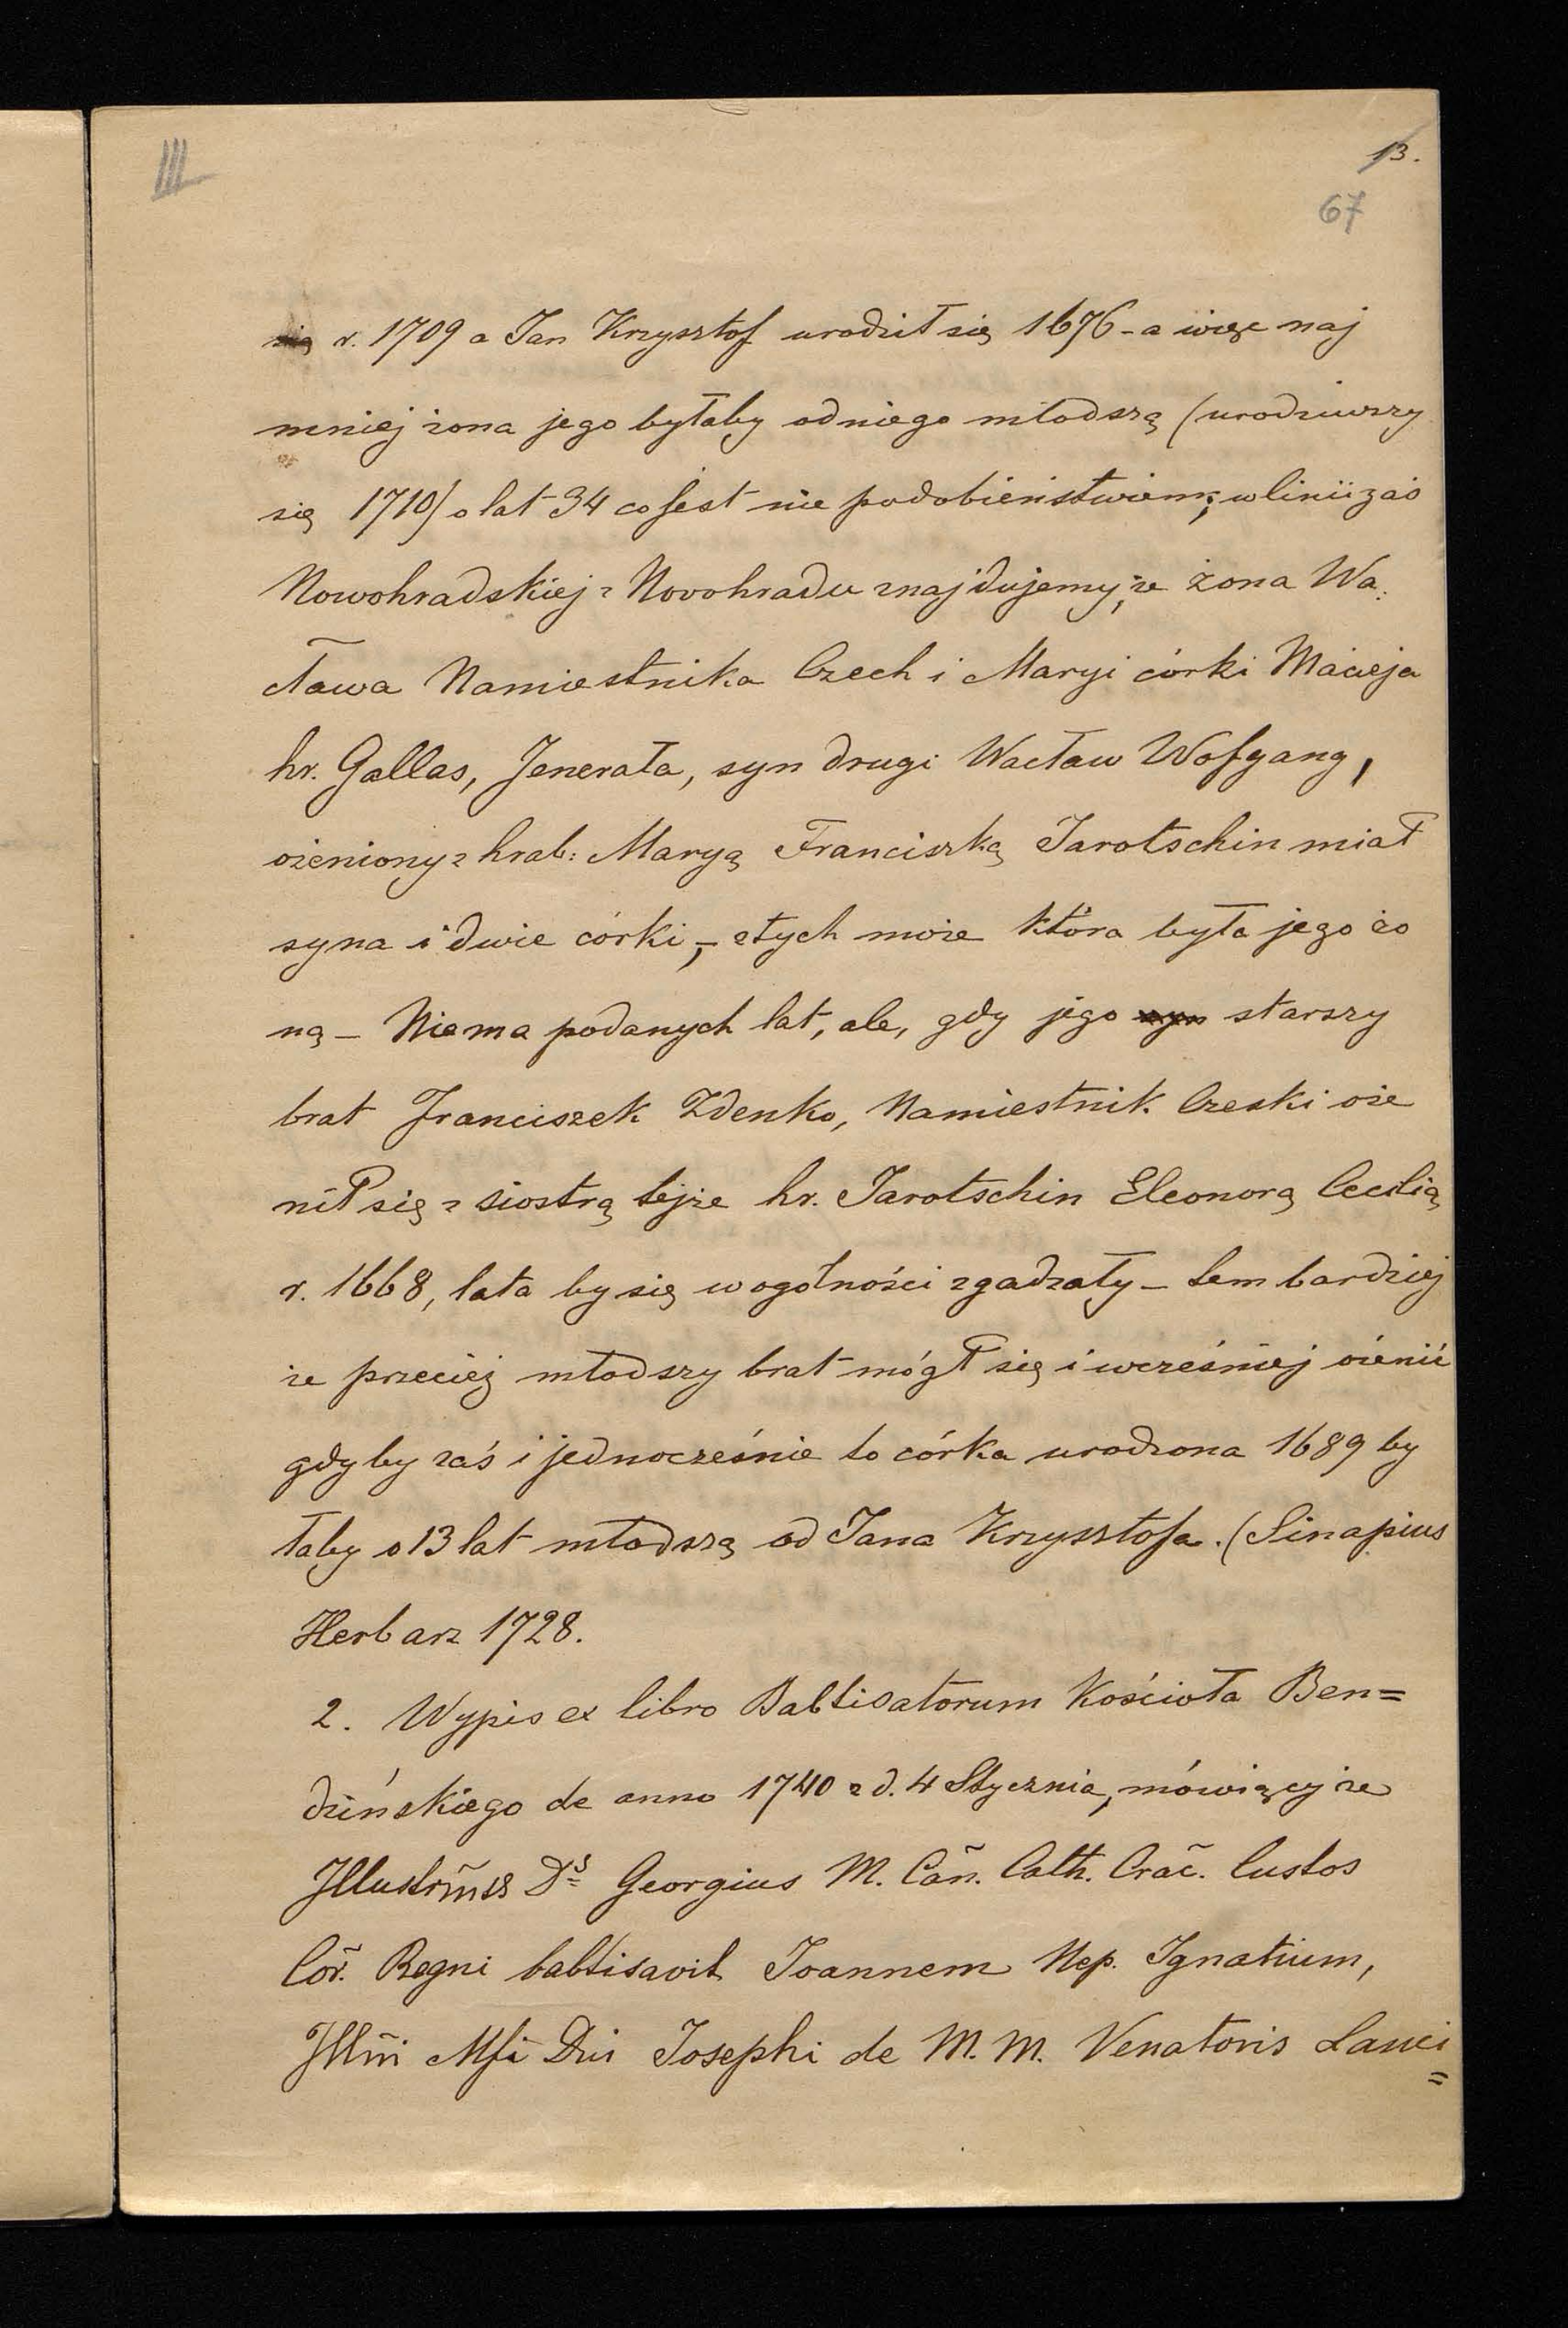 III
13.
67
się r. 1709 a Jan Krzysztof urodził się 1676 - a więc naj
mniej żona jego byłaby od niego młodszą (urodziwszy
się 1710) o lat 34 co jest nie podobieństwem; w linii zaś
Nowohradskiej z Novohradu znajdujemy, że żona Wa:
cława Namiestnika Czech i Maryi córki Macieja
hr. Gallas, Jenerała, syn drugi Wacław Wofgang,
ożeniony z hrab: Maryą Franciszką Jarotschin miał
syna i dwie córki, - z tych może która była jego żo
ną - Niema podanych lat, ale, gdy jego syn starszy
brat Franciszek Zdenko, Namiestnik Czeski oże
nił się z siostrą tejże hr. Jarotschin Eleonorą Cecilią
r. 1668, lata by się w ogólności zgadzały - tem bardziej
że przecież młodszy brat mógł się i wcześniej ożenić
gdyby zaś i jednocześnie to córka urodzona 1689 by
łaby o 13 lat młodszą od Jana Krzysztofa. (Sinapius
Herbarz 1728.
2. Wypis ex libro Babtisatorum Kościoła Ben=
dzińskiego de anno 1740 z d. 4 Stycznia, mówiący że
Ds Georgius M. Cãn. Cath. Crãc. Custos
Cor̃. Regni babtisavit Joannem Nep. Ignatium,
Illm̃i Mfi Dni Josephi de M. M. Venatoris Lanci
=